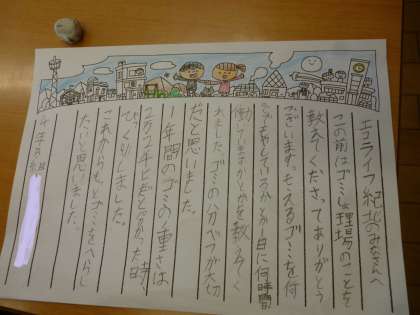 エコライフ紀北のみなさんへ
この前はゴミ処理場のことを
教えてくださってありがとう
ございます。もえるゴミを何
で
もやしているかとか一日に何時間
働いていますかとかを教えてく
れました。ゴミの分べつが大切
だと思いました。
1年間のゴミの重さは
だと分かった時、
びっくりしました。
これからもっとゴミをへらし
たいと思いました。
4年 組